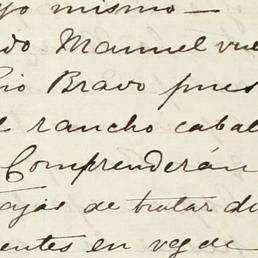 yo mismo —
do Manuel vue
io Bravo pues
rancho cabal
Comprenderán
ajas de tratar di
entes en vez de